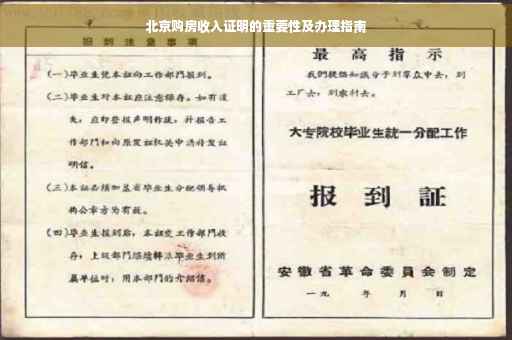 北京购房收入证明的重要性及办理指南
报到注意事项
(一)毕业生凭本证向工作部门报到。
(二)毕业生对本证应注意保存。如有遗
失,应即登报声明作废,并报告工
作部门和向原发证机关申请补发证
明信。
(三)本证必须加盖省毕业生分配领导机
构公章方为有效。
(四)毕业生报到后,本证交工作部门收
存;上级部门继续转派毕业生到所
属单位时,用本部门的介绍信。
最高指示
我们提倡知识分子到群众中去,到
工厂去,到农村去。
大专院校毕业生统一分配工作
报到证
安徽省革命委员会制定
一九 年 月 日